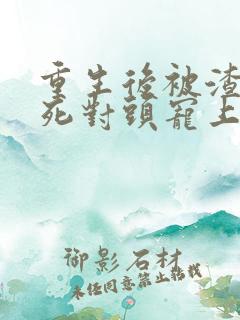 重生後被渣
死對頭寵上
御影石材
未经同意禁止转载